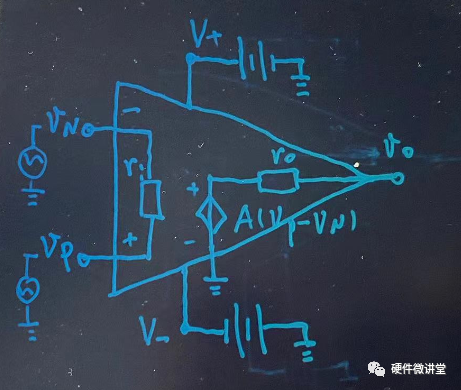 V+
VN
-
ri
ro
vo
+
A(VP-VN)
VP
+
-
V-
硬件微讲堂